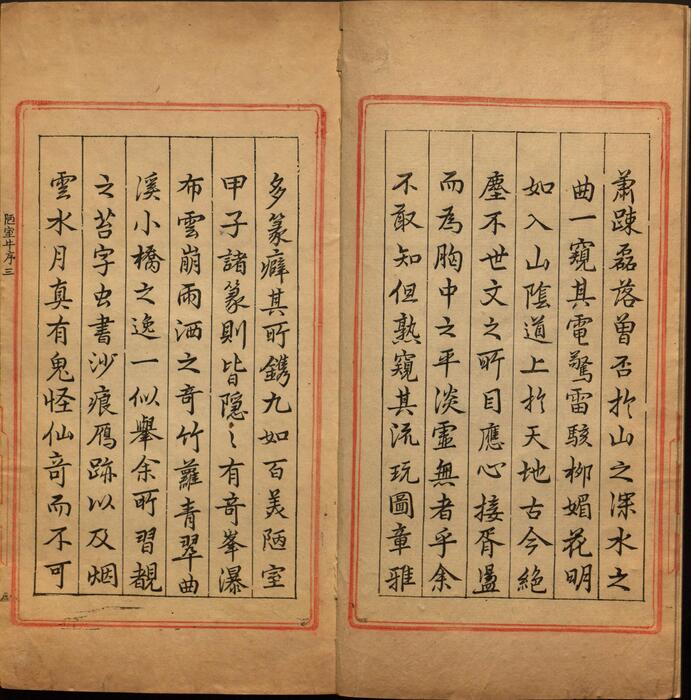 蕭踈磊落曾否扵山之深水之
曲一窺其電驚雷駭柳媚花明
如入山陰道上扵天地古今絶
塵不世文之所目應心接胥盪
而為胸中之平淡虛無者乎余
不敢知但熟窺其流玩圖章雅
多篆癖其所鐫九如百美陋室
甲子諸篆則皆隱〻有奇峯瀑
布雲崩雨洒之奇竹蘿青翠曲
溪小橋之逸一似舉余所習覩
之苔字虫書沙痕鴈跡以及烟
雲水月真有鬼怪仙竒而不可
陋室廾序 三